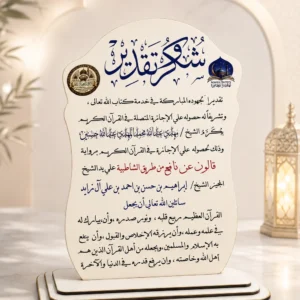 شكر وتقدير
تقديرا لجهوده المباركة في خدمة كتاب الله تعالى ،
وتشرفا له حصوله على الإجازة المتصلة في القرآن الكريم
يكرم الشيخ /
وذلك حصوله على الإجازة في القرآن الكريم برواية
قالون عن نافع من طريق الشاطبية على يد الشيخ
المجيز الشيخ / إبراهيم بن حسن بن احمد بن علي آل زايد
سائلين الله تعالى أن يجعل
القرآن العظيم ربيع قلبه ، ونور صدره ، وأن يبارك له
في علمه وعمله ، وأن يرزقه الإخلاص والقبول ، وأن ينفع
به الإسلام والمسلمين ، ويجعله من أهل القرآن الذين هم
أهل الله وخاصته ، وأن يرفع قدره في الدنيا والآخرة